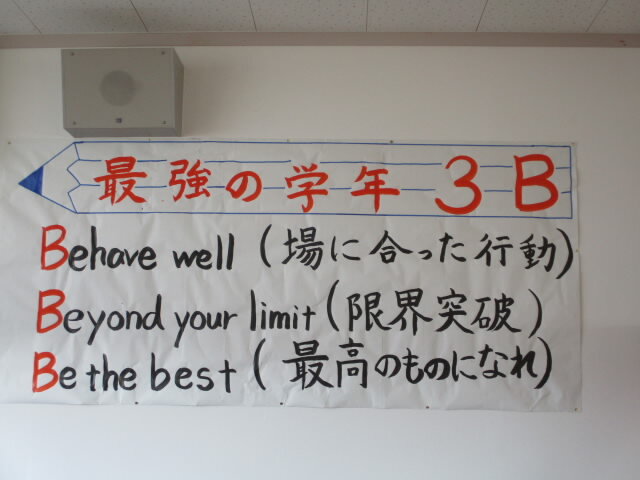 最強の学年 3B
Behave well (場に合った行動)
Beyond your limit (限界突破)
Be the best (最高のものになれ)